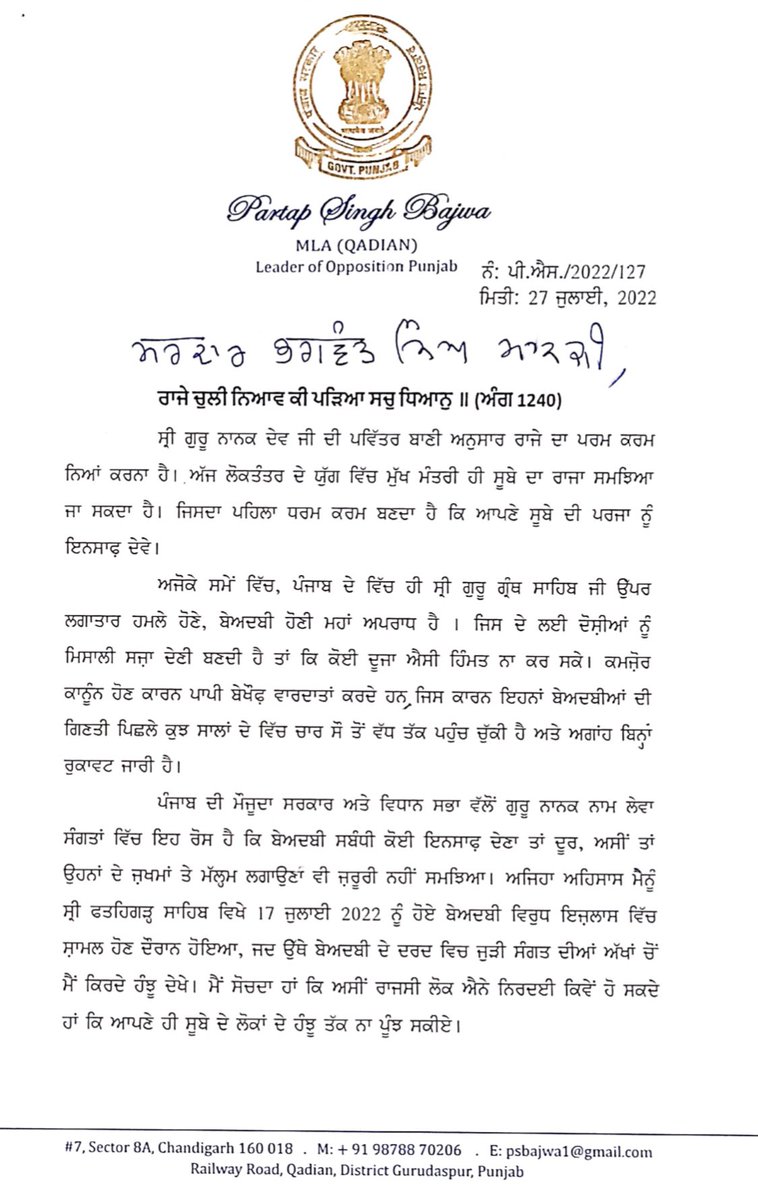 ਪੰਜਾਬ ਸਰਕਾਰ
सत्यमेव जयते
GOVT. PUNJAB
Partap Singh Bajwa
MLA (QADIAN)
Leader of Opposition Punjab
ਨੰ: ਪੀ.ਐਸ./2022/127
ਮਿਤੀ: 27 ਜੁਲਾਈ, 2022
ਸਰਦਾਰ ਭਗਵੰਤ ਸਿੰਘ ਮਾਨ ਜੀ,
ਰਾਜੇ ਚੁਲੀ ਨਿਆਵ ਕੀ ਪੜਿਆ ਸਚੁ ਧਿਆਨੁ ॥ (ਅੰਗ 1240)
ਸ੍ਰੀ ਗੁਰੂ ਨਾਨਕ ਦੇਵ ਜੀ ਦੀ ਪਵਿੱਤਰ ਬਾਣੀ ਅਨੁਸਾਰ ਰਾਜੇ ਦਾ ਪਰਮ ਕਰਮ
ਨਿਆਂ ਕਰਨਾ ਹੈ। ਅੱਜ ਲੋਕਤੰਤਰ ਦੇ ਯੁੱਗ ਵਿੱਚ ਮੁੱਖ ਮੰਤਰੀ ਹੀ ਸੂਬੇ ਦਾ ਰਾਜਾ ਸਮਝਿਆ
ਜਾ ਸਕਦਾ ਹੈ। ਜਿਸਦਾ ਪਹਿਲਾ ਧਰਮ ਕਰਮ ਬਣਦਾ ਹੈ ਕਿ ਆਪਣੇ ਸੂਬੇ ਦੀ ਪਰਜਾ ਨੂੰ
ਇਨਸਾਫ਼ ਦੇਵੇ।
ਅਜੋਕੇ ਸਮੇਂ ਵਿੱਚ, ਪੰਜਾਬ ਦੇ ਵਿੱਚ ਹੀ ਸ੍ਰੀ ਗੁਰੂ ਗ੍ਰੰਥ ਸਾਹਿਬ ਜੀ ਉੱਪਰ
ਲਗਾਤਾਰ ਹਮਲੇ ਹੋਣੇ, ਬੇਅਦਬੀ ਹੋਣੀ ਮਹਾਂ ਅਪਰਾਧ ਹੈ । ਜਿਸ ਦੇ ਲਈ ਦੋਸ਼ੀਆਂ ਨੂੰ
ਮਿਸਾਲੀ ਸਜ਼ਾ ਦੇਣੀ ਬਣਦੀ ਹੈ ਤਾਂ ਕਿ ਕੋਈ ਦੂਜਾ ਐਸੀ ਹਿੰਮਤ ਨਾ ਕਰ ਸਕੇ। ਕਮਜ਼ੋਰ
ਕਾਨੂੰਨ ਹੋਣ ਕਾਰਨ ਪਾਪੀ ਬੇਖੌਫ਼ ਵਾਰਦਾਤਾਂ ਕਰਦੇ ਹਨ, ਜਿਸ ਕਾਰਨ ਇਹਨਾਂ ਬੇਅਦਬੀਆਂ ਦੀ
ਗਿਣਤੀ ਪਿਛਲੇ ਕੁਝ ਸਾਲਾਂ ਦੇ ਵਿੱਚ ਚਾਰ ਸੌ ਤੋਂ ਵੱਧ ਤੱਕ ਪਹੁੰਚ ਚੁੱਕੀ ਹੈ ਅਤੇ ਅਗਾਂਹ ਬਿਨ੍ਹਾਂ
ਰੁਕਾਵਟ ਜਾਰੀ ਹੈ।
ਪੰਜਾਬ ਦੀ ਮੌਜੂਦਾ ਸਰਕਾਰ ਅਤੇ ਵਿਧਾਨ ਸਭਾ ਵੱਲੋਂ ਗੁਰੂ ਨਾਨਕ ਨਾਮ ਲੇਵਾ
ਸੰਗਤਾਂ ਵਿੱਚ ਇਹ ਰੋਸ ਹੈ ਕਿ ਬੇਅਦਬੀ ਸਬੰਧੀ ਕੋਈ ਇਨਸਾਫ ਦੇਣਾ ਤਾਂ ਦੂਰ, ਅਸੀਂ ਤਾਂ
ਉਹਨਾਂ ਦੇ ਜ਼ਖਮਾਂ ਤੇ ਮੱਲ੍ਹਮ ਲਗਾਉਣਾਂ ਵੀ ਜ਼ਰੂਰੀ ਨਹੀਂ ਸਮਝਿਆ। ਅਜਿਹਾ ਅਹਿਸਾਸ ਮੈਨੂੰ
ਸ੍ਰੀ ਫਤਹਿਗੜ੍ਹ ਸਾਹਿਬ ਵਿਖੇ 17 ਜੁਲਾਈ 2022 ਨੂੰ ਹੋਏ ਬੇਅਦਬੀ ਵਿਰੁਧ ਇਜ਼ਲਾਸ ਵਿੱਚ
ਸ਼ਾਮਲ ਹੋਣ ਦੌਰਾਨ ਹੋਇਆ, ਜਦ ਉੱਥੇ ਬੇਅਦਬੀ ਦੇ ਦਰਦ ਵਿਚ ਜੁੜੀ ਸੰਗਤ ਦੀਆਂ ਅੱਖਾਂ ਚੋਂ
ਮੈਂ ਕਿਰਦੇ ਹੰਝੂ ਦੇਖੇ। ਮੈਂ ਸੋਚਦਾ ਹਾਂ ਕਿ ਅਸੀਂ ਰਾਜਸੀ ਲੋਕ ਐਨੇ ਨਿਰਦਈ ਕਿਵੇਂ ਹੋ ਸਕਦੇ
ਹਾਂ ਕਿ ਆਪਣੇ ਹੀ ਸੂਬੇ ਦੇ ਲੋਕਾਂ ਦੇ ਹੰਝੂ ਤੱਕ ਨਾ ਪੂੰਝ ਸਕੀਏ।
#7, Sector 8A, Chandigarh 160 018 . M: + 91 98788 70206 . E: psbajwa1@gmail.com
Railway Road, Qadian, District Gurudaspur, Punjab